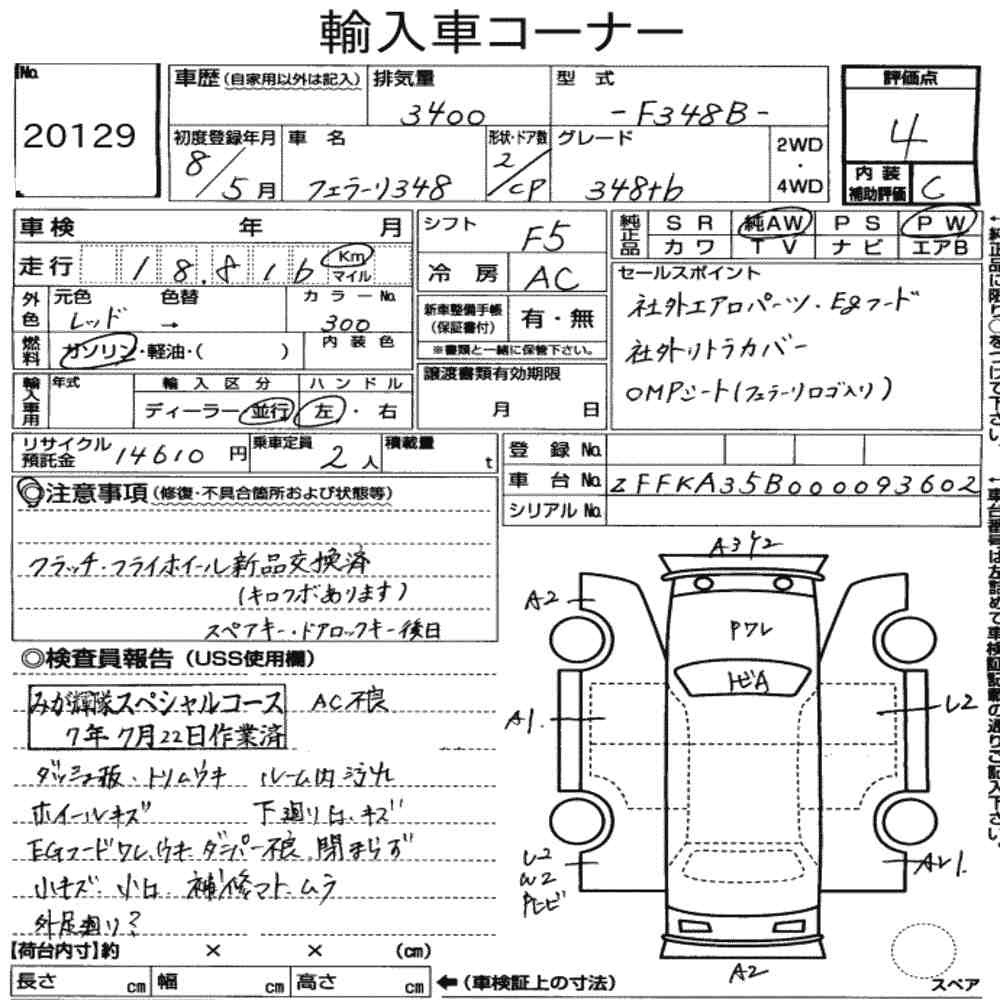 輸入車コーナー
No.
20129
車歴(自家用以外は記入)
排気量
3400
型 式
-F348B-
評価点
4
内装補助評価
C
初度登録年月
8/5月
車 名
フェラーリ348
形状・ドア数
2/CP
グレード
348tb
2WD
・
4WD
車検 年 月
走行 18.816 Km マイル
シフト
F5
冷 房
AC
純正品
SR 純AW PS PW
カワ TV ナビ エアB
セールスポイント
社外エアロパーツ・Egフード
社外リトラカバー
OMPシート(フェラーリロゴ入り)
外色
元色 色替
レッド →
カラーNo.
300
燃料
ガソリン・軽油・( )
内装色
新車整備手帳(保証書付)
有・無
※書類と一緒に保管下さい。
輸入車用
年式
輸入区分
ディーラー・並行
ハンドル
左・右
譲渡書類有効期限
月 日
リサイクル預託金
14610円
乗車定員
2人
積載量
t
登 録 No.
車 台 No. ZFFKA35B000093602
シリアル No.
◎注意事項(修復・不具合箇所および状態等)
クラッチ・フライホイール新品交換済
(キロクボあります)
スペアキー・ドアロックキー後日
◎検査員報告(USS使用欄)
みが輝隊スペシャルコース
7年7月22日作業済
AC不良
ダッシュ板・トリムウキ ルーム内汚れ
ホイールキズ 下廻り凹、キズ
EGフードワレ、ウキ ダンパー不良、閉まらず
小キズ、小凹、補修マト、ムラ
外足廻り?
【荷台内寸】約 × × (cm)
長さ cm 幅 cm 高さ cm
←(車検証上の寸法)
A3 Y2
A2
Pワレ
トビA
A1
U2
U2
W2
AU1
A2
スペア
←純正品に限り○をつけて下さい。
←車台番号は左詰めで車検証記載の通りご記入下さい。